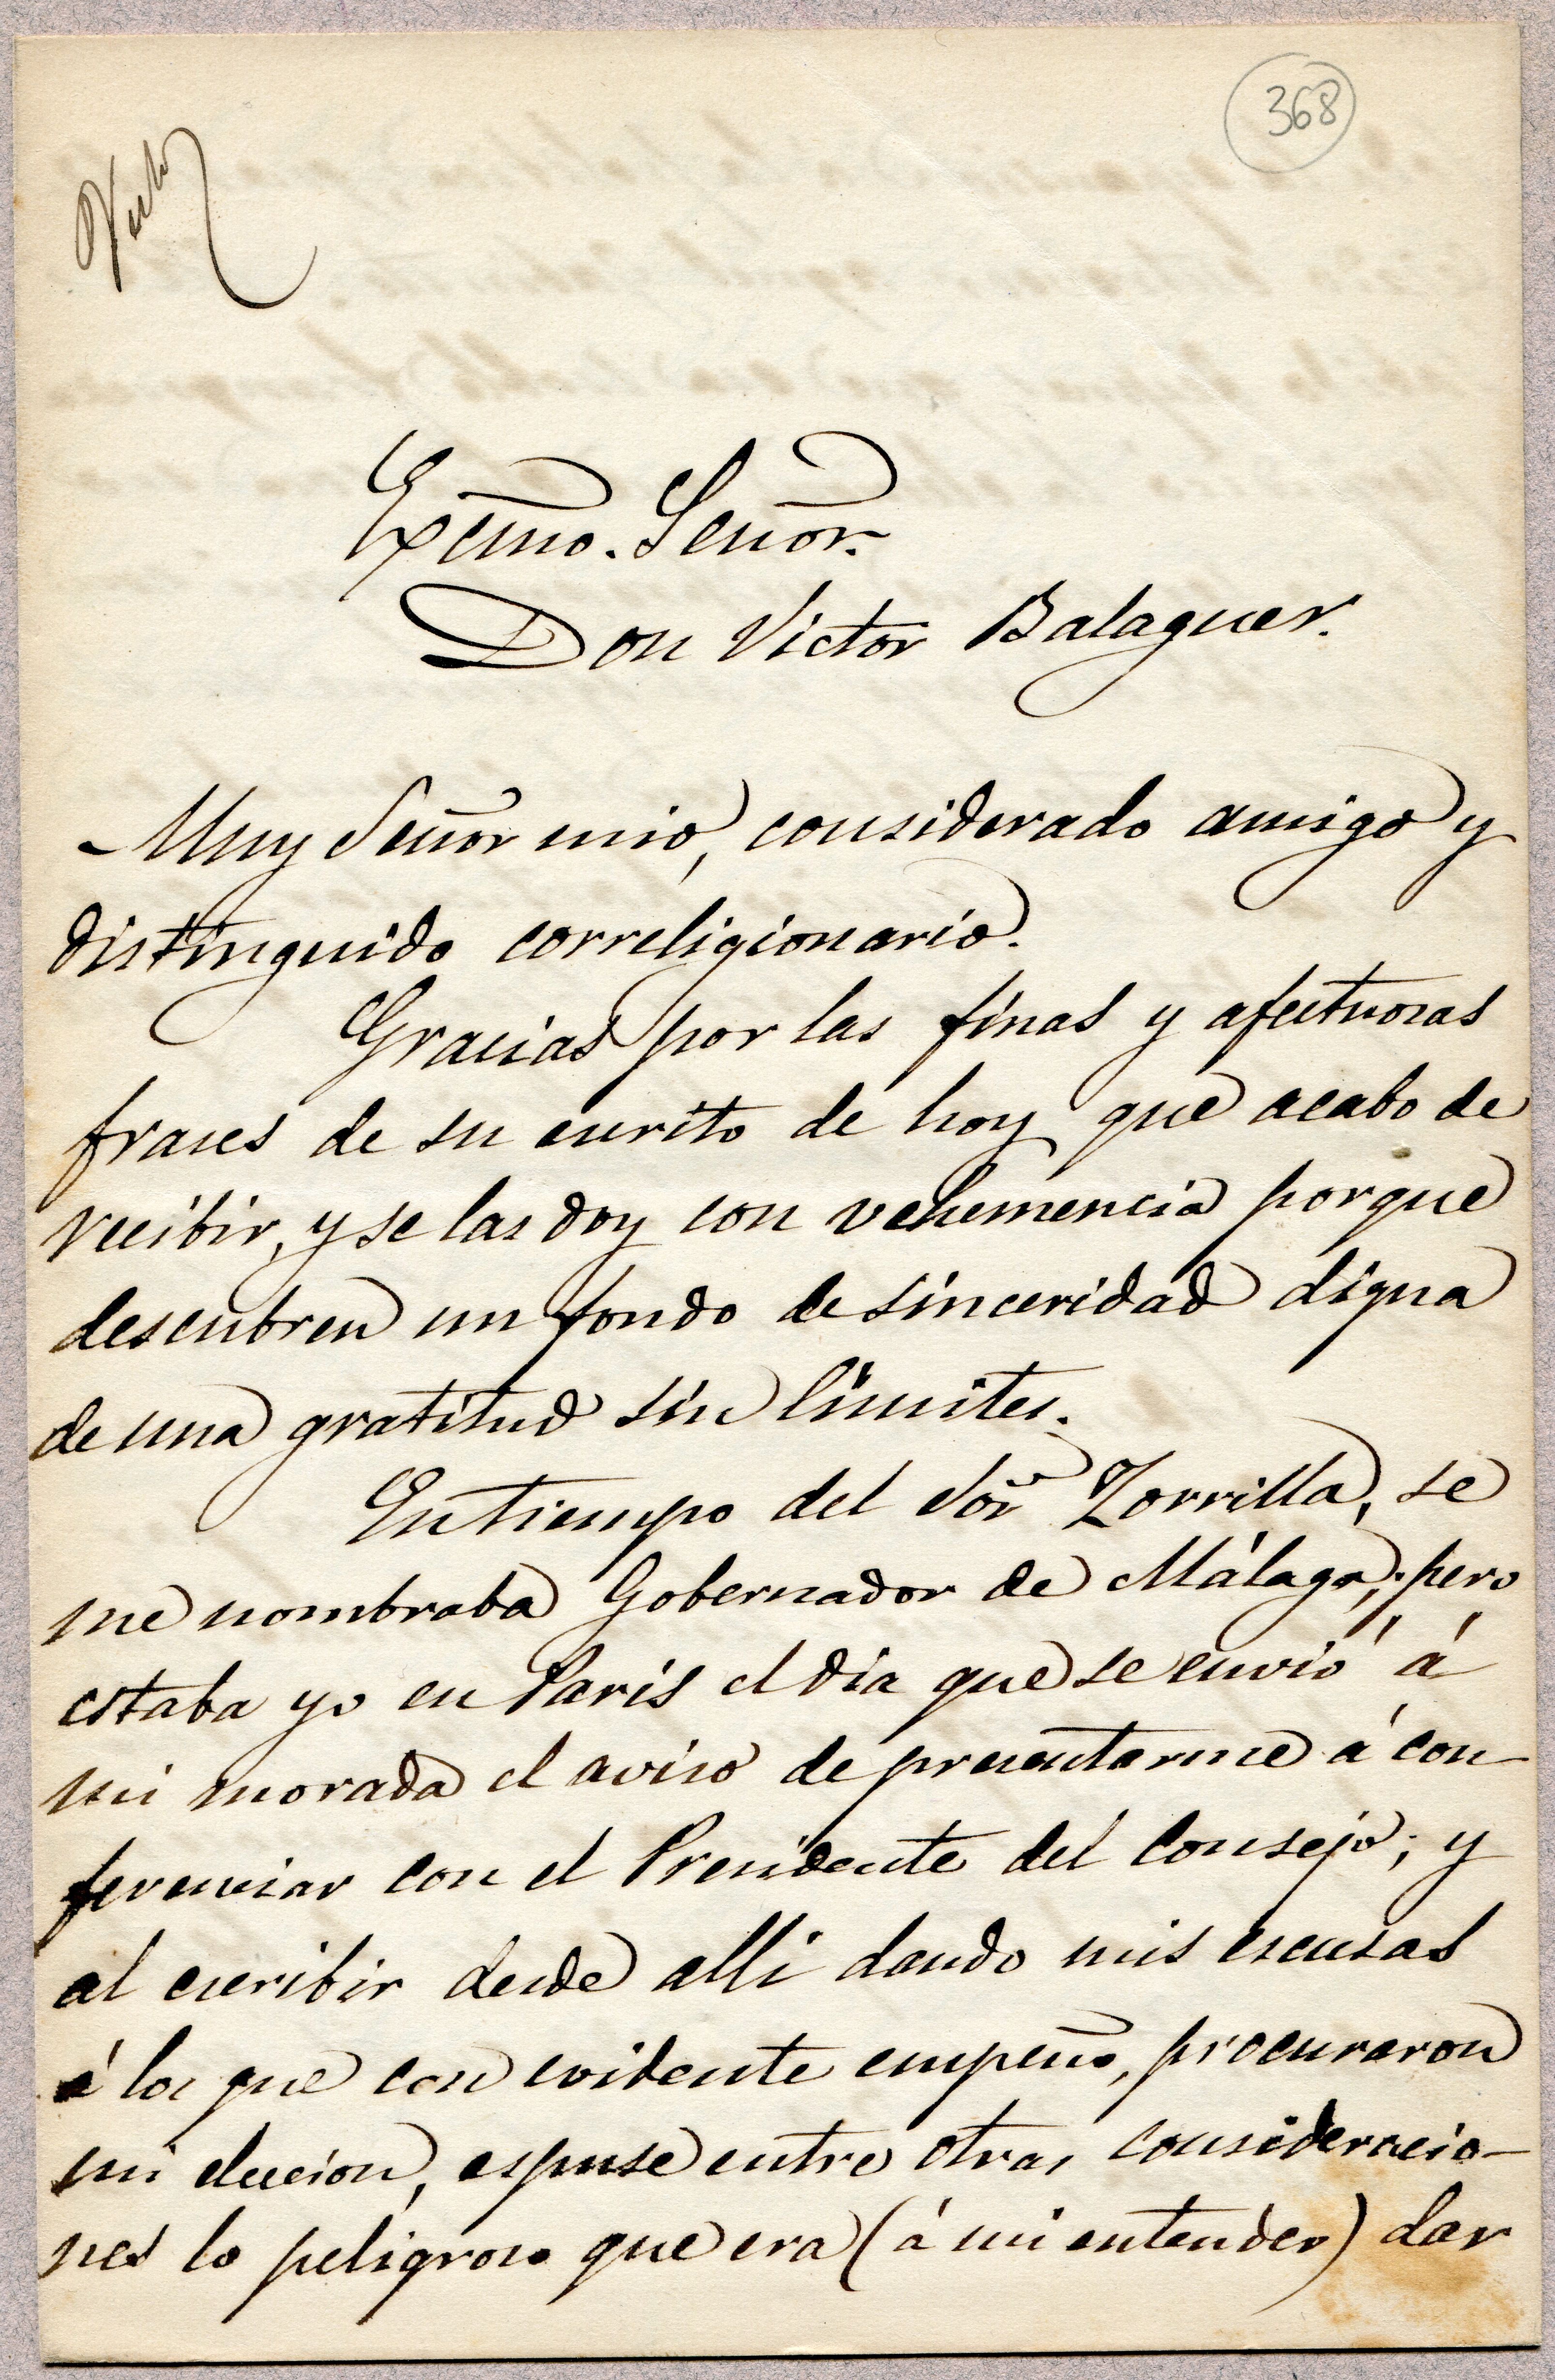 368
Excmo. Señor.
Don Victor Balaguer.
Muy Señor mio, considerado amigo y
distinguido correligionario.
Gracias por las finas y afectuosas
frases de su escrito de hoy que acabo de
recibir, y se las doy con vehemencia porque
descubren un fondo de sinceridad digna
de una gratitud sin limites.
En tiempo del Sor Zorrilla, se
me nombraba Gobernador de Málaga; pero
estaba yo en Paris el dia que se envió á
mi morada el aviso de presentarme á con-
ferenciar con el Presidente del Consejo; y
al escribir desde alli dando mis escusas
á los que con evidente empeño, procuraron
mi eleccion, espuse entre otras consideracio-
nes lo peligroso que era (á mi entender) dar